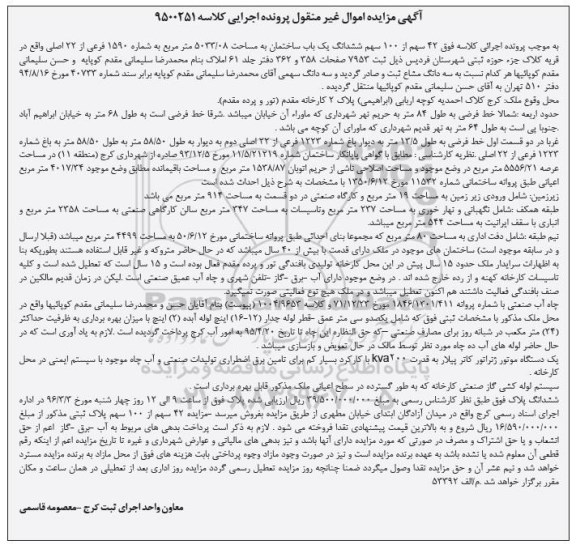 آگهی مزایده اموال غیر منقول پرونده اجرایی کلاسه ۹۵۰۰۲۵۱
به موجب پرونده اجرائی کلاسه فوق ۴۲ سهم از ۱۰۰ سهم ششدانگ یک باب ساختمان به مساحت ۵۰۳۳/۰۸ متر مربع به شماره ۱۵۹۰ فرعی از ۲۲ اصلی واقع در
قریه کلاک جزء حوزه ثبتی شهرستان فردیس ذیل ثبت ۷۹۵۳ صفحات ۳۵۸ و ۳۶۲ دفتر جلد ۶۱ املاک بنام محمدرضا سلیمانی مقدم کوپایه و حسن سلیمانی
مقدم کوپائیها هر کدام نسبت به سه دانگ مشاع ثبت و صادر گردید و سه دانگ سهمی آقای محمدرضا سلیمانی مقدم کوپایه برابر سند شماره ۴۰۷۳۳ مورخ ۹۴/۸/۱۶
دفتر ۵۱۰ تهران به آقای حسن سلیمانی مقدم کوپائیها منتقل گردیده .
محل وقوع ملک: کرج کلاک احمدیه کوچه اربابی (ابراهیمی) پلاک ۲ کارخانه مقدم (تور و پرده مقدم).
حدود اربعه :شمالا خط فرضی به طول ۸۴ متر به حریم نهر شهرداری که ماوراء آن خیابان میباشد .شرقا خط فرضی است به طول ۶۸ متر به خیابان ابراهیم آباد
.جنوبا پی است به طول ۶۴ متر به نهر قدیم شهرداری که ماورای آن کوچه می باشد .
غربا در دو قسمت اول خط فرضی به طول ۱۳/۵ متر به دیوار باغ شماره ۱۲۲۳ فرعی از ۲۳ اصلی دوم به دیوار به طول ۵۸/۵۰ متر به طول ۵۸/۵۰ متر به باغ شماره
۱۲۲۳ فرعی از ۲۲ اصلی .نظریه کارشناسی : مطابق با گواهی پایانکار ساختمان شماره ۱۱/۵/۲۱۲۱۹ مورخ ۹۳/۱۲/۵ صادره از شهرداری کرج (منطقه ۱۱) در مساحت
عرصه ۵۵۵۶/۲۱ متر مربع در وضع موجود و مساحت اصلاحی ناشی از حریم اتوبان ۱۵۳۸/۸۷ متر مربع و مساحت باقیمانده مطابق وضع موجود ۴۰۱۷/۳۴ متر مربع
اعیانی طبق پروانه ساختمانی شماره ۱۱۵۳۲ مورخ ۱۳۵۰/۶/۱۲ با مشخصات به شرح ذیل احداث شده است
زیرزمین: شامل ورودی زیر زمین به مساحت ۱۹ متر مربع و کارگاه صنعتی در دو قسمت به مساحت ۹۱۴ متر مربع می باشد.
طبقه همکف :شامل نگهبانی و نهار خوری به مساحت ۲۳۷ متر مربع وتاسیسات به مساحت ۳۴۷ متر مربع سالن کارگاهی صنعتی به مساحت ۲۳۵۸ متر مربع و
انباری با سقف ایرانیت به مساحت ۵۴۴ متر مربع میباشد.
نیم طبقه :شامل دفت اداری به مساحت ۸۰ متر مربع که مجموعا بنای احداثی طبق پروانه ساختمانی مورخ ۵۰/۶/۱۲ به مساحت ۴۴۹۹ متر مربع میباشد (قبلا ارسال
و در سابقه موجود است) ساختمان های موجود در ملک دارای قدمت با بیش از ۴۰ سال میباشد که در حال حاضر متروکه و غیر قابل استفاده هستند بطوریکه بنا
به اظهارات سرایدار ملک حدود ۱۵ سال پیش در این محل کارخانه تولیدی بافندگی تور و پرده مقدم فعال بوده است و ۱۵ سال است که تعطیل شده است و کلیه
تاسیسات کارخانه کهنه و از رده خارج شده اند . در وضع موجود دارای آب –برق –گاز –تلفن شهری و چاه آب عمیق صنعتی است .لیکن در زمان قدیم مالکین در
صنف بافندگی فعالیت داشتند هم اکنون تعطیل میباشد و در ملک هیچ نوع فعالیتی صورت نمیگیرد.
چاه آب صنعتی با شماره پروانه ۱۸۴۶/۱۳۰۱/۴۱۱ مورخ ۷۱/۱۲/۲۳ و کلاسه ۱۰۰۴/۹۶۵۳ (پیوست) بنام آقایان حسن و محمدرضا سلیمانی مقدم کوپائیها واقع در
محل ملک مذکور با مشخصات ثبتی فوق که شامل یکصدو سی متر عمق –قطر لوله جدار (۱۲-۱۶) اینچ لوله آبده (۲) اینچ با میزان بهره برداری به ظرفیت حداکثر
(۲۴) متر مکعب در شبانه روز برای مصارف صنعتی –که حق النظاره این چاه تا تاریخ ۹۵/۴/۲۰ به امور آب کرج پرداخت گردیده است .لازم به یاد آوری است که در
حال حاضر لوله های آب ده چاه مورد نظر توسط مالک در حال تعویض و بازسازی میباشد .
یک دستگاه موتور ژنراتور کاتر پیلار به قدرت kva۲۰۰ با کارکرد بسیار کم برای تامین برق اضطراری تولیدات صنعتی و آب چاه موجود با سیستم ایمنی در محل
کارخانه .
سیستم لوله کشی گاز صنعتی کارخانه که به طور گسترده در سطح اعیانی ملک مذکور قابل بهره برداری است .
ششدانگ پلاک فوق طبق نظر کارشناس رسمی به مبلغ ۳۹/۵۰۰/۰۰۰/۰۰۰ ریال ارزیابی شده پلاک فوق از ساعت ۹ الی ۱۲ روز چهار شنبه مورخ ۹۶/۳/۳ در اداره
اجرای اسناد رسمی کرج واقع در میدان آزادگان ابتدای خیابان مطهری از طریق مزایده بفروش میرسد –مزایده ۴۲ سهم از ۱۰۰ سهم پلاک ثبتی مذکور از مبلغ
۱۶/۵۹۰/۰۰۰/۰۰۰ ریال شروع و به بالاترین قیمت پیشنهادی نقدا فروخته می شود . لازم به ذکر است پرداخت بدهی های مربوط به آب –برق –گاز اعم از حق
انشعاب و یا حق اشتراک و مصرف در صورتی که مورد مزایده دارای آنها باشد و نیز بدهی های مالیاتی و عوارض شهرداری و غیره تا تاریخ مزایده اعم از اینکه رقم
قطعی آن معلوم شده یا نشده باشد به عهده برنده مزایده است و نیز در صورت وجود مازاد وجوه پرداختی بابت هزینه های فوق از محل مازاد به برنده مزایده مسترد
خواهد شد و نیم عشر آن و حق مزایده نقدا وصول میگردد ضمنا چنانچه روز مزایده تعطیل رسمی گردد مزایده روز اداری بعد از تعطیلی در همان ساعت و مکان
مقرر برگزار خواهد شد .م/الف ۵۳۳۹۲
معاون واحد اجرای ثبت کرج –معصومه قاسمی